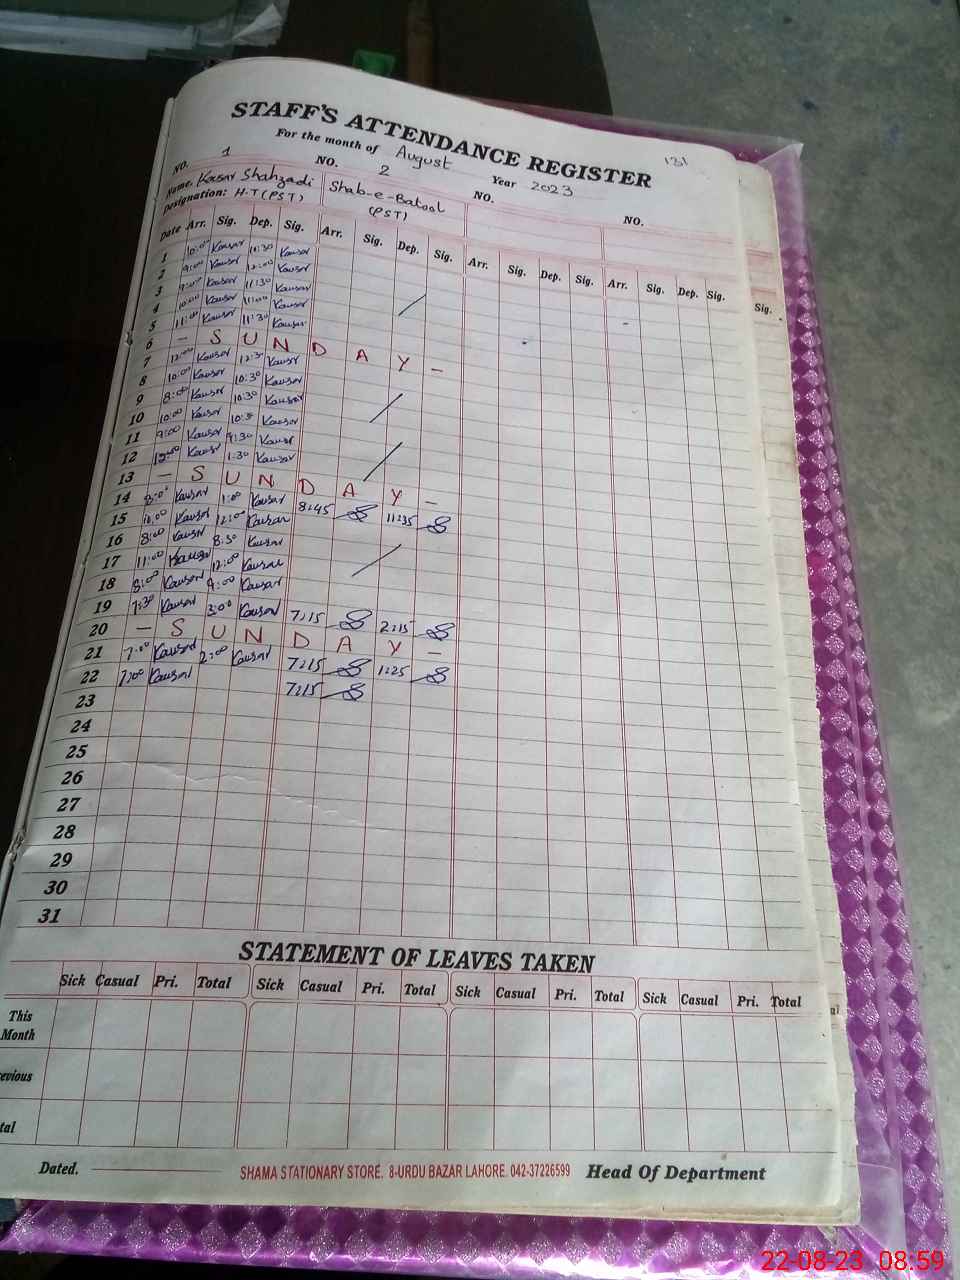 STAFF'S ATTENDANCE REGISTER
131
For the month of August Year 2023
NO. 1 NO. 2 NO. NO.
Name. Kosar Shahzadi Shab-e-Batool
Designation: H.T (PST) (PST)
Date Arr. Sig. Dep. Sig. Arr. Sig. Dep. Sig. Arr. Sig. Dep. Sig. Arr. Sig. Dep. Sig. Sig.
1 10:00 Kausar 10:30 Kausar
2 9:00 Kausar 12:00 Kausar
3 Kausar 11:30 Kausar
4 10:00 Kausar 11:00 Kausar
5 11:00 Kausar 11:30 Kausar
6 - S U N D A Y -
7 12:00 Kausar 12:30 Kausar
8 10:00 Kausar 10:30 Kausar
9 8:00 Kausar 10:30 Kausar
10 10:00 Kausar 10:30 Kausar
11 9:00 Kausar 9:30 Kausar
12 Kausar 1:30 Kausar
13 - S U N D A Y -
14 8:00 Kausar 1:00 Kausar 8:45 11:35
15 10:00 Kausar 12:00 Kausar
16 8:00 Kausar 8:30 Kausar
17 11:00 Kausar 12:00 Kausar
18 8:00 Kausar 9:00 Kausar
19 7:30 Kausar 3:00 Kausar 7:15 2:15
20 - S U N D A Y -
21 7:00 Kausar 2:00 Kausar 7:15 1:25
22 7:00 Kausar 7:15
23
24
25
26
27
28
29
30
31
STATEMENT OF LEAVES TAKEN
Sick Casual Pri. Total Sick Casual Pri. Total Sick Casual Pri. Total Sick Casual Pri. Total
This
Month
evious
tal
Dated. SHAMA STATIONARY STORE. 8-URDU BAZAR LAHORE. 042-37226599 Head Of Department
22-08-23 08:59